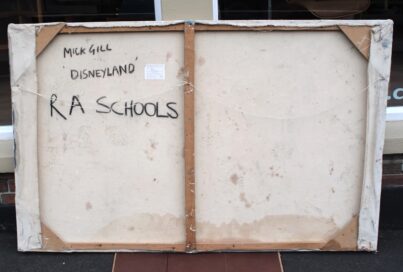 MICK GILL
'DISNEYLAND'
RA SCHOOLS